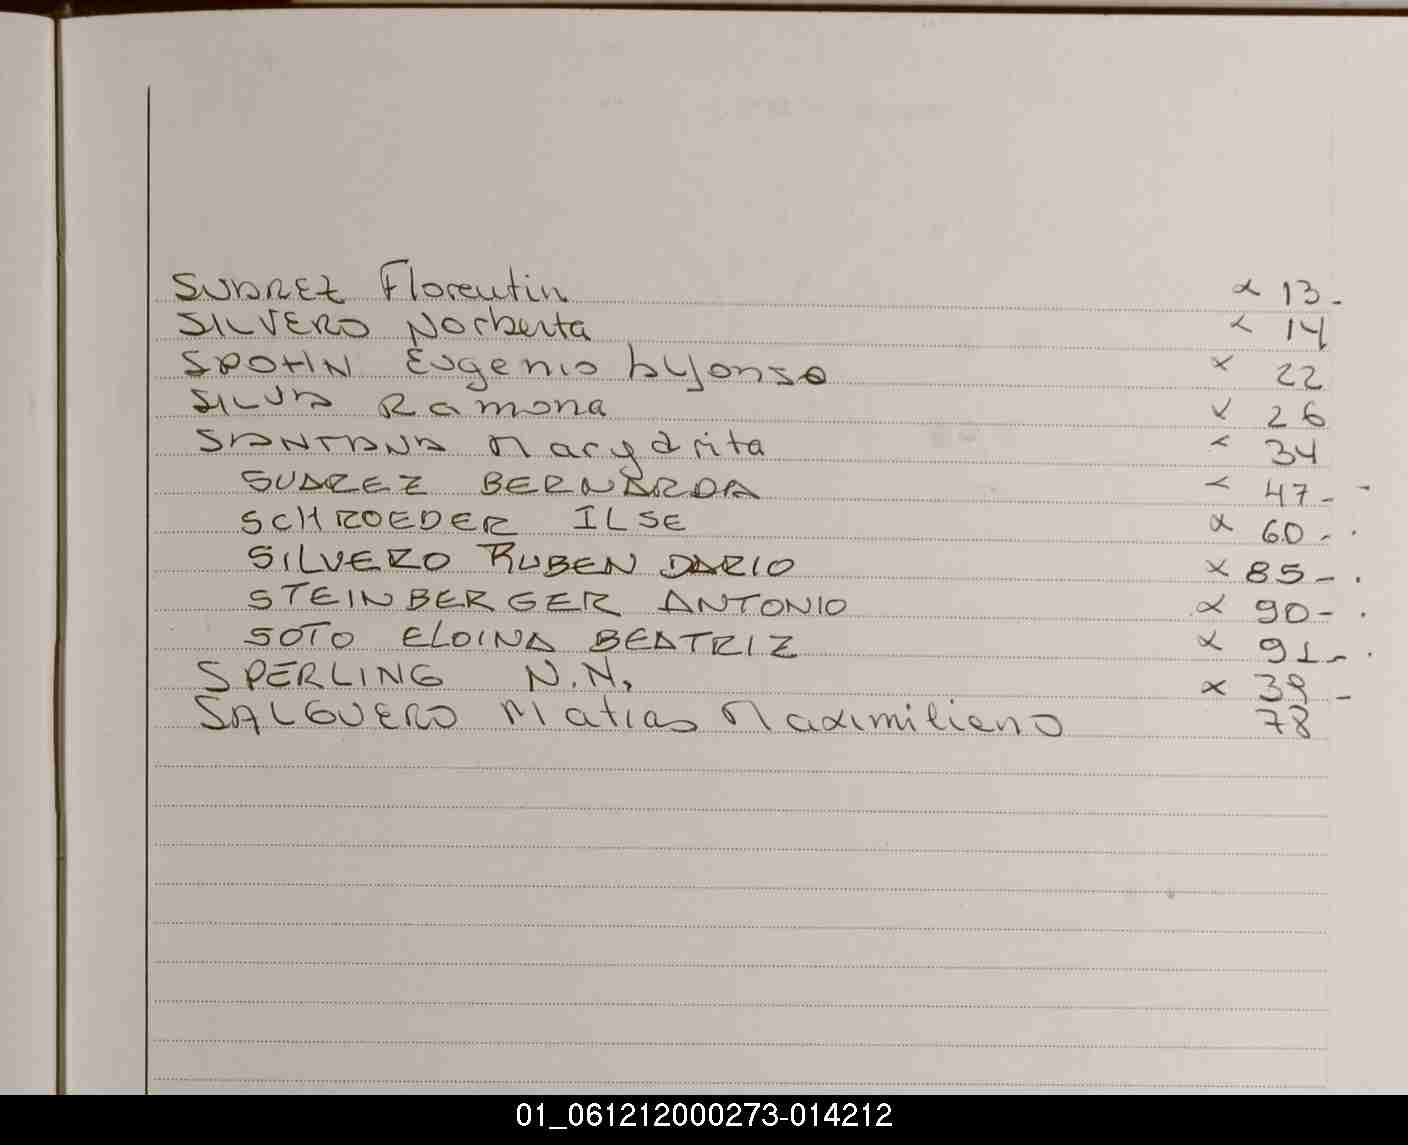 SUAREZ Florentin x 13-
SILVERO Norberta x 14
SPOHN Eugenio Alfonso x 22
SILVA Ramona x 26
SANTANA Margarita x 34
SUAREZ BERNARDA x 47-
SCHROEDER ILSE x 60-.
SILVERO RUBEN DARIO x 85-.
STEINBERGER ANTONIO x 90-.
SOTO ELOINA BEATRIZ x 91-.
SPERLING N.N, x 39-
SALGUERO Matias Maximilieno 78
01_061212000273-014212